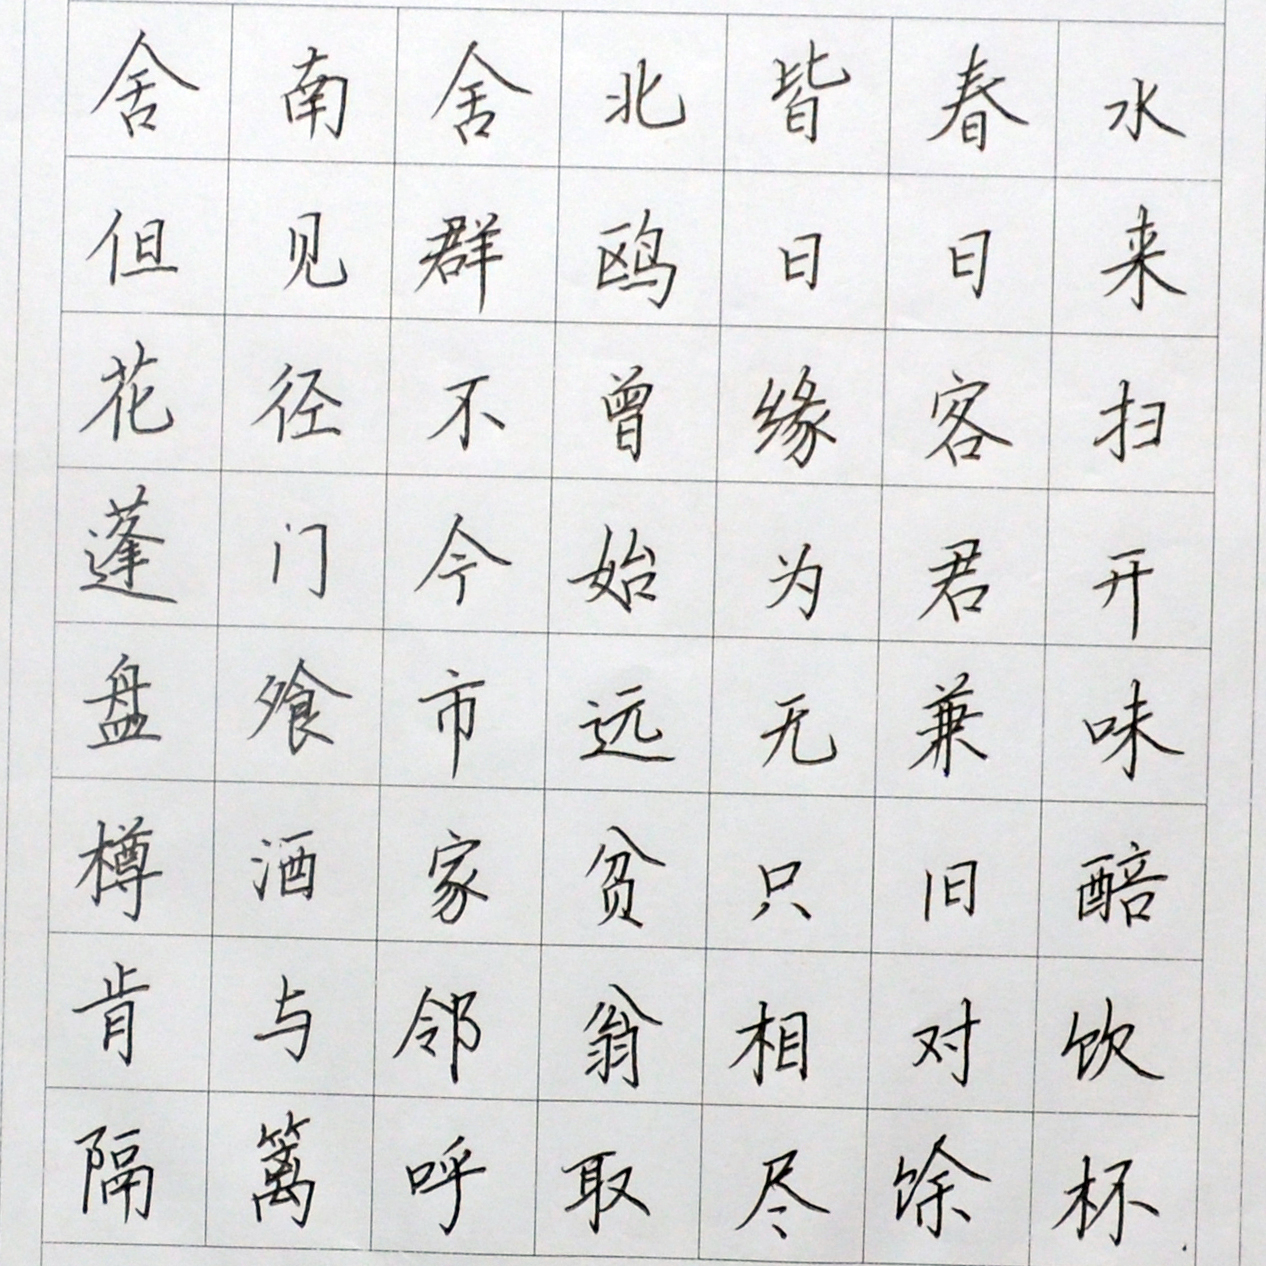 舍南舍北皆春水
但见群鸥日日来
花径不曾缘客扫
蓬门今始为君开
盘飧市远无兼味
樽酒家贫只旧醅
肯与邻翁相对饮
隔篱呼取尽馀杯